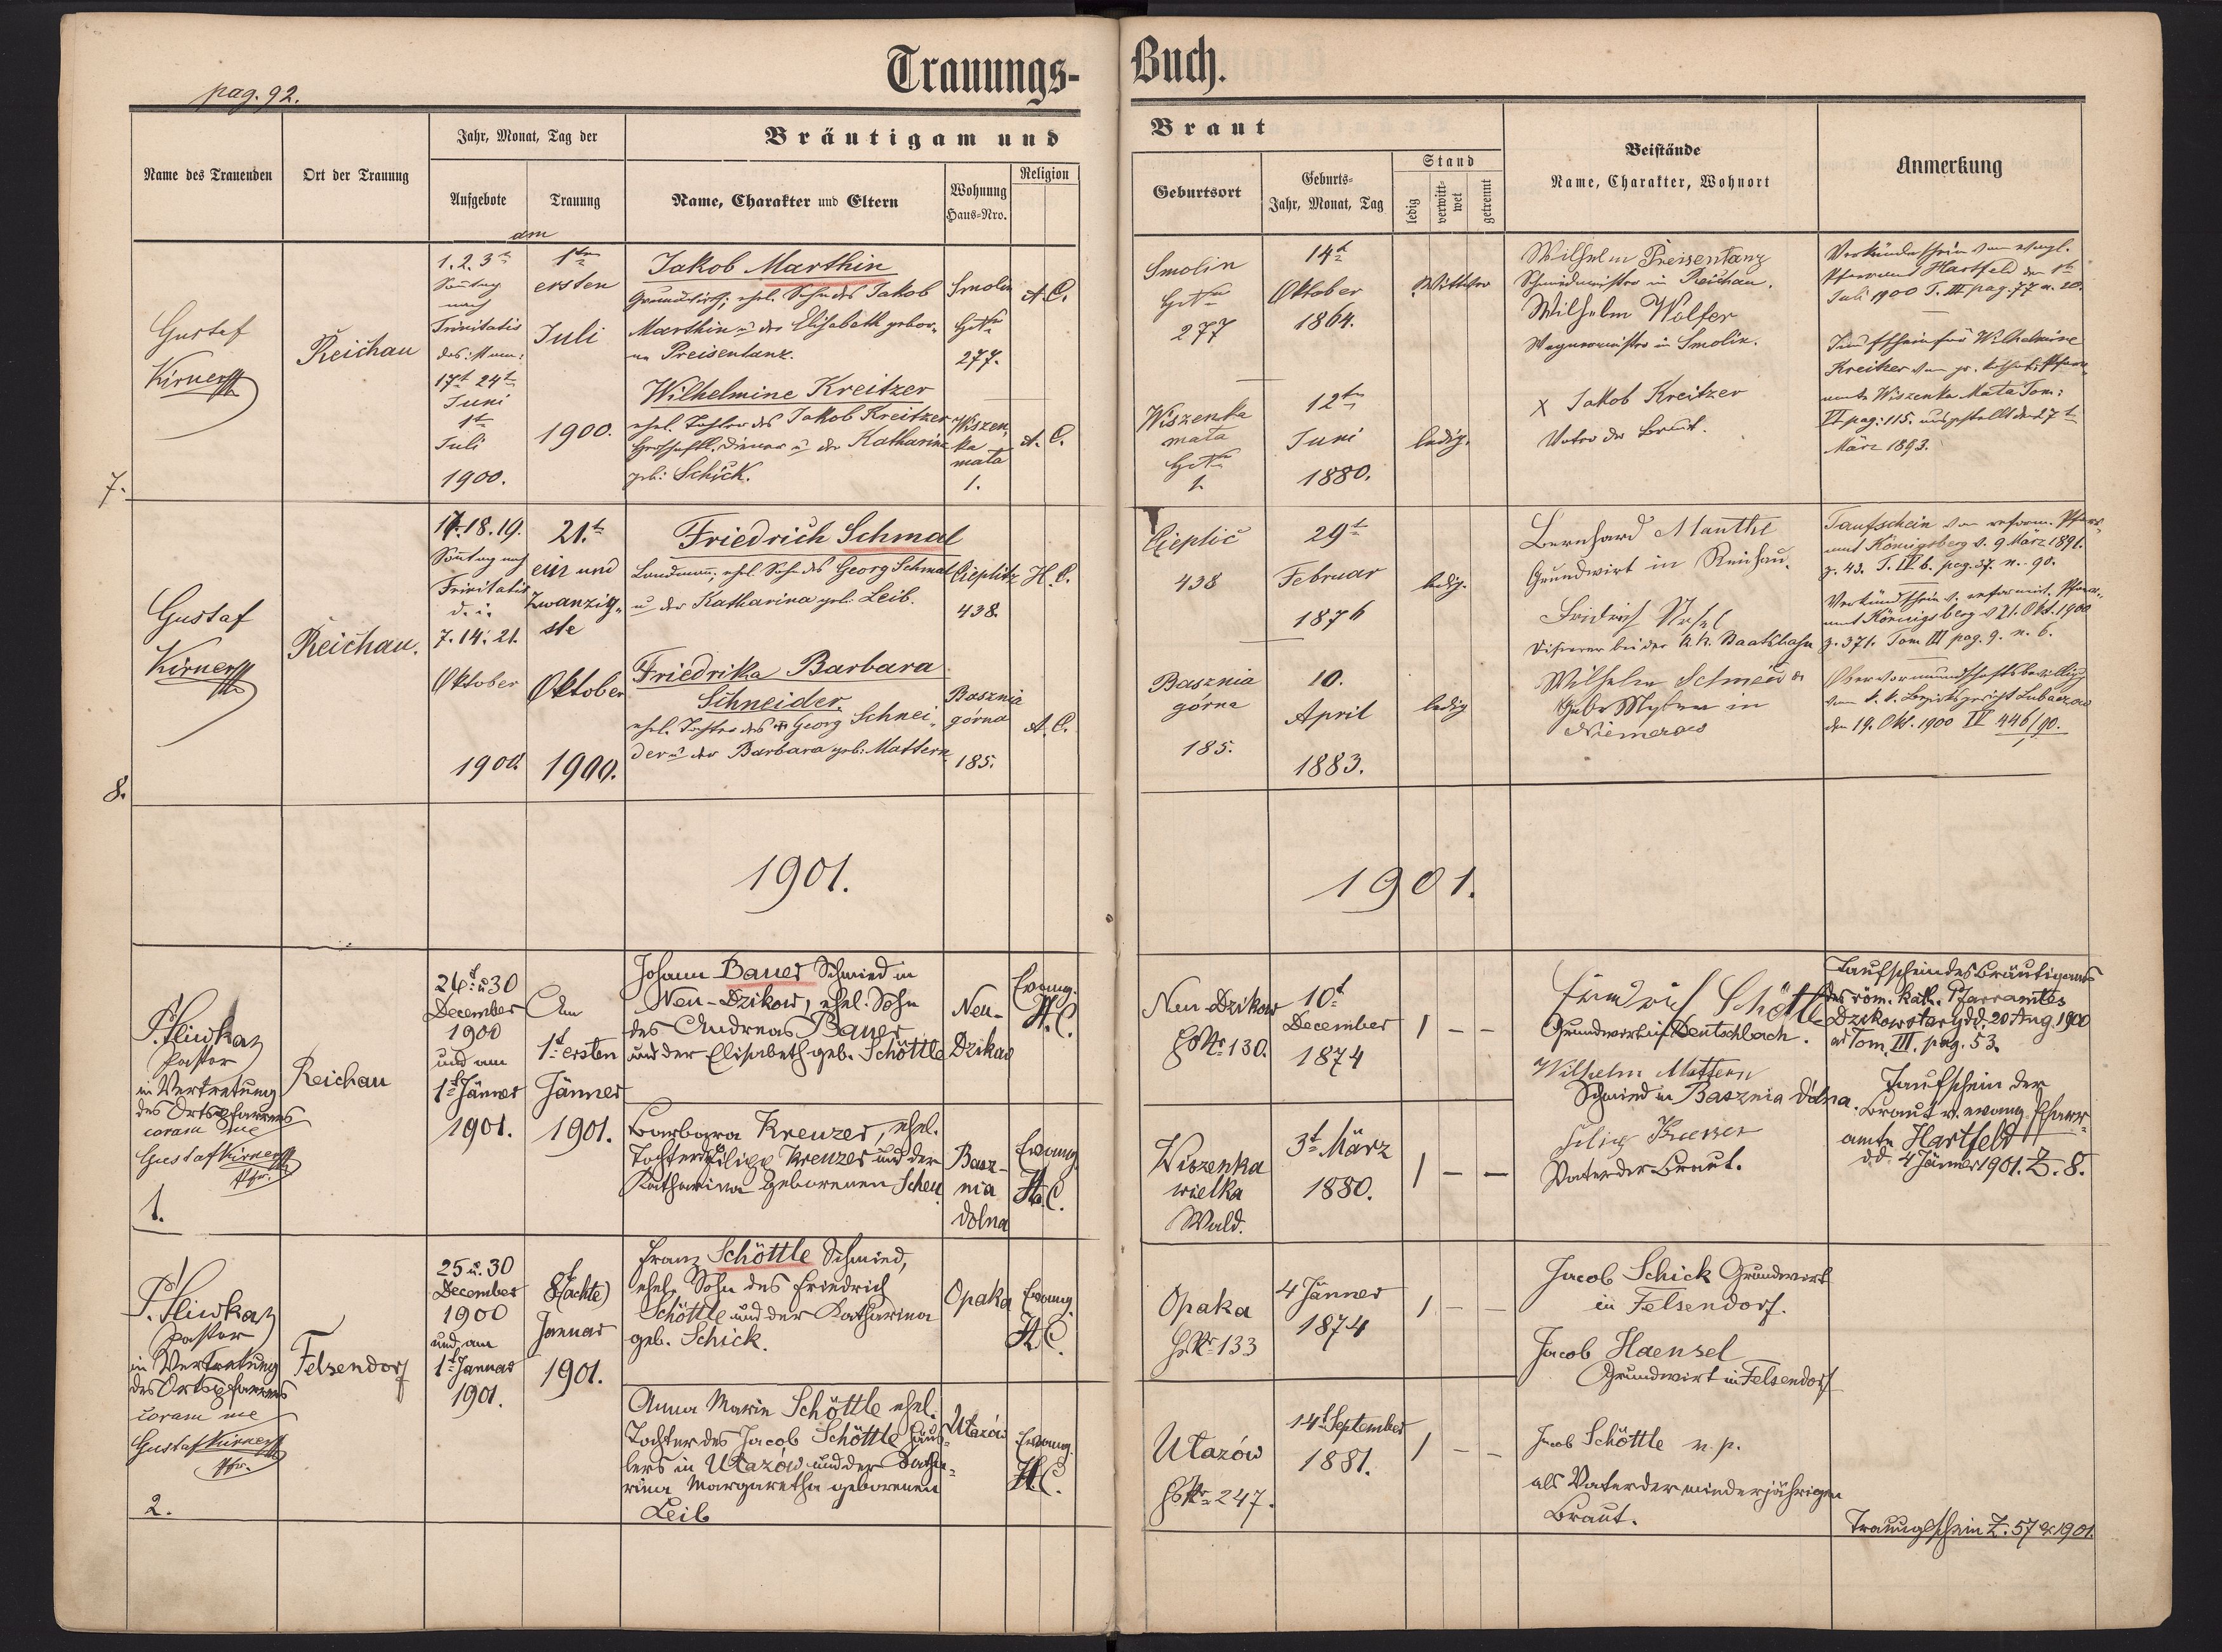 pag. 92.
Trauungs-Buch.
Name des Trauenden
Ort der Trauung
Jahr, Monat, Tag der
Aufgebote
Trauung
am
Bräutigam und Braut
Name, Charakter und Eltern
Wohnung
Haus-Nro.
Religion
Geburtsort
Geburts-
Jahr, Monat, Tag
Stand
ledig
verwitt-
wet
getrennt
Beistände
Name, Charakter, Wohnort
Anmerkung
7.
Gustaf
Kirner
Reichau
1. 2. 3
Sontag
nach
Trinitatis
17t 24t
Juni
1t
Juli
1900.
1ten
ersten
Juli
1900.
Jakob Marthin
Grundwirth, ehel. Sohn des Jakob
Marthin u. der Elisabeth gebor.
Preisentanz.
Smolin
277.
A. C.
Wilhelmine Kreitzer
ehel. Tochter des Jakob Kreitzer
u. der Katharina
geb. Schick.
Wiszen
ka
mała
1.
A. C.
Smolin
277
14t
Oktober
1864.
Wittwer
Wiszenka
mała
1.
12t
Juni
1880.
ledig.
Wilhelm Preisentanz
Schmiedmeister in Reichau.
Wilhelm Wolfer
Wagnermeister in Smolin.
X Jakob Kreitzer
Vater der Braut.
Verkündschein vom evangl.
Pfarramt Hartfeld den 1t
Juli 1900 T. III pag. 77 n. 20.
Taufschein für Wilhelmine
Kreitzer
Wiszenka Mała Tom:
pag: 115. ausgestellt den 27t
März 1893.
8.
Gustaf
Kirner
Reichau.
17. 18. 19.
Sontag nach
Trinitatis
d. i.
7. 14. 21.
Oktober
1900.
21.t
ein und
zwanzig-
ste
Oktober
1900.
Friedrich Schmal
Landmann, ehel. Sohn des Georg Schmal
u. der Katharina geb. Leib.
Cieplitz
438.
H. C.
Friedrika Barbara
Schneider
ehel. Tochter des Georg Schnei-
der u. der Barbara geb. Mattern.
Basznia
górna
185.
A. C.
Cieplic
438
29t
Februar
1876
ledig.
Basznia
górna
185.
10.
April
1883.
ledig
Bernhard Manthe
Grundwirt in Reichau.
bei der k.k. Staatsbahn
Wilhelm Schneider
in
Niemerow
Taufschein vom reform. Pfarr-
amt Königsberg v. 9 März 1891.
z. 43. T. IV b. pag. 37. n. 90.
Verkündschein v. reformirt. Pfarr-
amt Königsberg v. 21. Okt. 1900
z. 371. Tom III pag. 9. n. 6.
Obervormundschaftsbewilligg
vom k. k. Bezirksgericht Lubaczow
den 19. Okt. 1900 IV 446/90.
1901.
1901.
Pastor
in Vertretung
des Ortspfarrers
coram me
Gustaf Kirner
Pfr.
1.
Reichau
26t u 30
December
1900
und am
1t Jänner
1901.
Am
1t ersten
Jänner
1901.
Johann Bauer Schmied in
Neu-Dzikow, ehel. Sohn
des Andreas Bauer
und der Elisabeth geb. Schöttle
Neu-
Dzikow
Evang.
H. C.
Barbara Kreuzer, ehel.
Tochter Filipp Kreuzer und der
Katharina geborenen Scheu
Basz-
nia
dolna
Evang.
H. C.
Neu-Dzikow
HsNr 130.
10t
December
1874
1 - -
Wiszenka
wielka
Wald.
3t März
1880.
1 - -
Friedrich Schöttle
Grundwirth in Deutschbach.
Wilhelm Mattern
Schmied in Basznia Dolna.
Filip Kreuzer
Vater der Braut.
Taufschein des Bräutigams
des röm. kath. Pfarramtes
Dzikowstary dd. 20 Aug. 1900
ad Tom. III. pag. 53.
Taufschein der
Braut v. evang. Pfarr-
amte Hartfeld
dd. 4 Jänner 1901. Z. 8.
Pastor
in Vertretung
des Ortspfarrers
coram me
Gustaf Kirner
Pfr.
2.
Felsendorf
25 u. 30
December
1900
und am
1t Januar
1901.
8t (achte)
Januar
1901.
Franz Schöttle Schmied,
ehel. Sohn des Friedrich
Schöttle und der Katharina
geb. Schick.
Opaka
Evang.
H. C.
Anna Maria Schöttle ehel.
Tochter des Jacob Schöttle Häus-
lers in Ułazów und der Katha-
rina Margaretha geborenen
Leib
Ułazów
Evang.
H. C.
Opaka
HsNr 133
4 Jänner
1874
1 - -
Ułazów
HsNr 247.
14t September
1881.
1 - -
Jacob Schick Grundwirt
in Felsendorf.
Jacob Haensel
Grundwirt in Felsendorf
Jacob Schöttle m. p.
als Vater der minderjährigen
Braut.
Trauungsschein Z. 57 ex 1901.